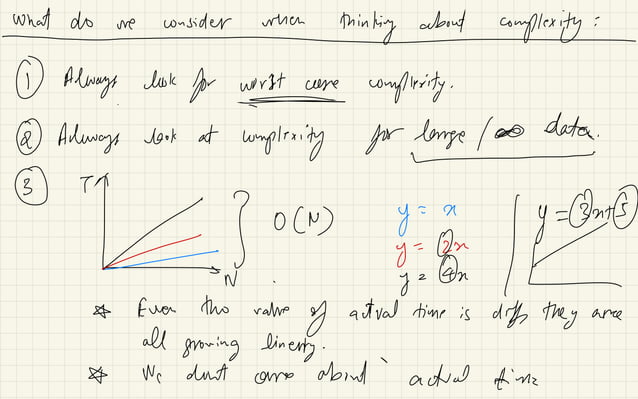 What do we consider when thinking about complexity :
1 Always look for worst case complexity.
2 Always look at complexity for large / ∞ data.
3
T
N
O(N)
y = x
y = 2x
y = 4x
y = 3x+5
☆ Even tho value of actual time is diff they are
all growing linearly.
☆ We dont care about actual time